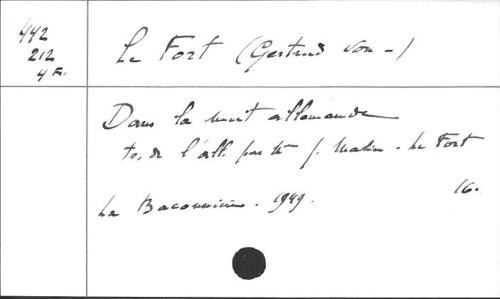 442
212
4 Fr.
Le Fort (Gertrud von -)
Dans la nuit allemande
tr. de l'all. par Mme J. - Le Fort
La Baconnière. 1949. 16.